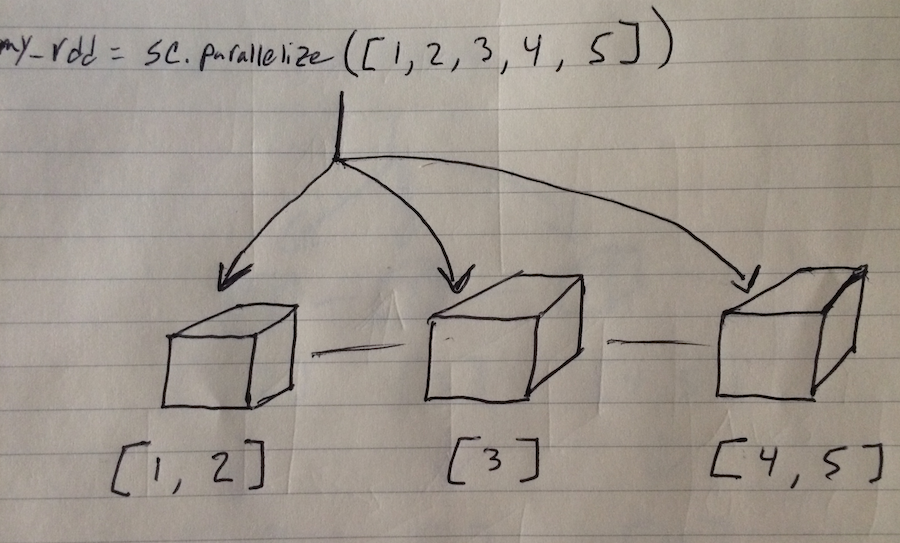 my_rdd = sc.parallelize([1, 2, 3, 4, 5])
[1, 2] [3] [4, 5]